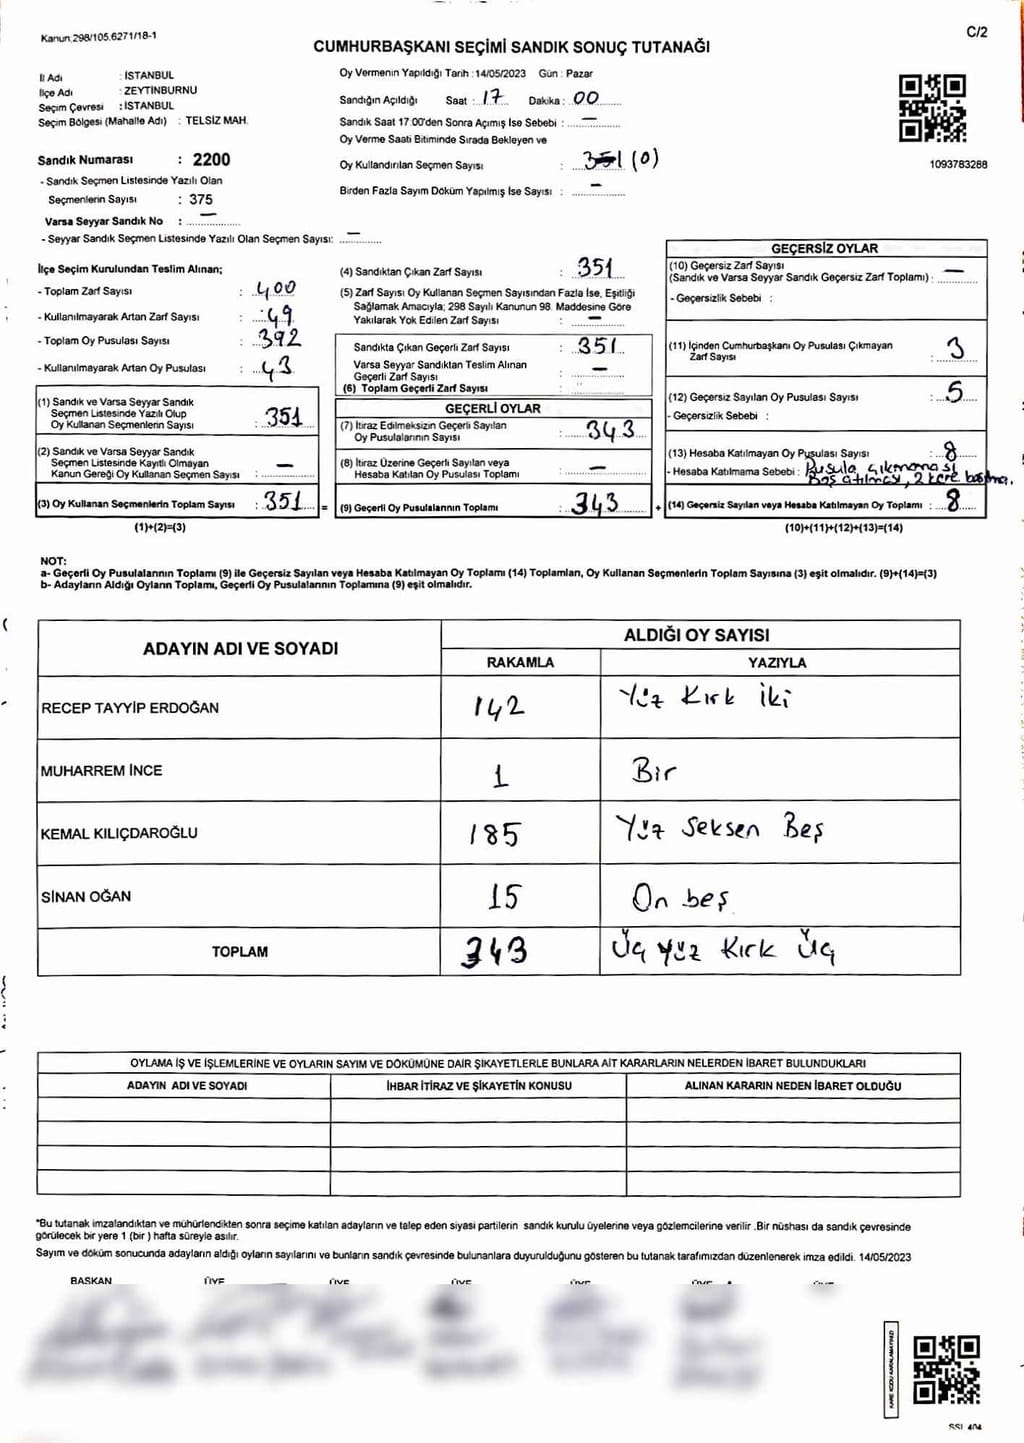 Kanun.298/105.6271/18-1
C/2
CUMHURBAŞKANI SEÇİMİ SANDIK SONUÇ TUTANAĞI
İl Adı : İSTANBUL
İlçe Adı : ZEYTİNBURNU
Seçim Çevresi : İSTANBUL
Seçim Bölgesi (Mahalle Adı) : TELSİZ MAH.
Sandık Numarası : 2200
- Sandık Seçmen Listesinde Yazılı Olan
Seçmenlerin Sayısı : 375
Varsa Seyyar Sandık No : —
- Seyyar Sandık Seçmen Listesinde Yazılı Olan Seçmen Sayısı: —
Oy Vermenin Yapıldığı Tarih : 14/05/2023 Gün : Pazar
Sandığın Açıldığı Saat : 17 Dakika : 00
Sandık Saat 17:00'den Sonra Açımış İse Sebebi : —
Oy Verme Saati Bitiminde Sırada Bekleyen ve
Oy Kullandırılan Seçmen Sayısı : 351 (0)
Birden Fazla Sayım Döküm Yapılmış İse Sayısı : —
1093783288
İlçe Seçim Kurulundan Teslim Alınan;
- Toplam Zarf Sayısı : 400
- Kullanılmayarak Artan Zarf Sayısı : 49
- Toplam Oy Pusulası Sayısı : 392
- Kullanılmayarak Artan Oy Pusulası : 43
(1) Sandık ve Varsa Seyyar Sandık
Seçmen Listesinde Yazılı Olup
Oy Kullanan Seçmenlerin Sayısı : 351
(2) Sandık ve Varsa Seyyar Sandık
Seçmen Listesinde Kayıtlı Olmayan
Kanun Gereği Oy Kullanan Seçmen Sayısı : —
(3) Oy Kullanan Seçmenlerin Toplam Sayısı : 351 =
(1)+(2)=(3)
(4) Sandıktan Çıkan Zarf Sayısı : 351
(5) Zarf Sayısı Oy Kullanan Seçmen Sayısından Fazla İse, Eşitliği
Sağlamak Amacıyla; 298 Sayılı Kanunun 98. Maddesine Göre
Yakılarak Yok Edilen Zarf Sayısı : —
Sandıkta Çıkan Geçerli Zarf Sayısı : 351
Varsa Seyyar Sandıktan Teslim Alınan
Geçerli Zarf Sayısı : —
(6) Toplam Geçerli Zarf Sayısı :
GEÇERLİ OYLAR
(7) İtiraz Edilmeksizin Geçerli Sayılan
Oy Pusulalarının Sayısı : 343
(8) İtiraz Üzerine Geçerli Sayılan veya
Hesaba Katılan Oy Pusulası Toplamı : —
(9) Geçerli Oy Pusulalarının Toplamı : 343 +
GEÇERSİZ OYLAR
(10) Geçersiz Zarf Sayısı
(Sandık ve Varsa Seyyar Sandık Geçersiz Zarf Toplamı) : —
- Geçersizlik Sebebi :
(11) İçinden Cumhurbaşkanı Oy Pusulası Çıkmayan
Zarf Sayısı : 3
(12) Geçersiz Sayılan Oy Pusulası Sayısı : 5
- Geçersizlik Sebebi :
(13) Hesaba Katılmayan Oy Pusulası Sayısı : 8
- Hesaba Katılmama Sebebi : Pusula çıkmaması
Boş atılması, 2 kere basma.
(14) Geçersiz Sayılan veya Hesaba Katılmayan Oy Toplamı : 8
(10)+(11)+(12)+(13)=(14)
NOT:
a- Geçerli Oy Pusulalarının Toplamı (9) ile Geçersiz Sayılan veya Hesaba Katılmayan Oy Toplamı (14) Toplamları, Oy Kullanan Seçmenlerin Toplam Sayısına (3) eşit olmalıdır. (9)+(14)=(3)
b- Adayların Aldığı Oyların Toplamı, Geçerli Oy Pusulalarının Toplamına (9) eşit olmalıdır.
ADAYIN ADI VE SOYADI
ALDIĞI OY SAYISI
RAKAMLA YAZIYLA
RECEP TAYYİP ERDOĞAN 142 Yüz Kırk İki
MUHARREM İNCE 1 Bir
KEMAL KILIÇDAROĞLU 185 Yüz Seksen Beş
SİNAN OĞAN 15 On beş
TOPLAM 343 Üç Yüz Kırk Üç
OYLAMA İŞ VE İŞLEMLERİNE VE OYLARIN SAYIM VE DÖKÜMÜNE DAİR ŞİKAYETLERLE BUNLARA AİT KARARLARIN NELERDEN İBARET BULUNDUKLARI
ADAYIN ADI VE SOYADI İHBAR İTİRAZ VE ŞİKAYETİN KONUSU ALINAN KARARIN NEDEN İBARET OLDUĞU
*Bu tutanak imzalandıktan ve mühürlendikten sonra seçime katılan adayların ve talep eden siyasi partilerin sandık kurulu üyelerine veya gözlemcilerine verilir .Bir nüshası da sandık çevresinde
görülecek bir yere 1 (bir ) hafta süreyle asılır.
Sayım ve döküm sonucunda adayların aldığı oyların sayılarını ve bunların sandık çevresinde bulunanlara duyurulduğunu gösteren bu tutanak tarafımızdan düzenlenerek imza edildi. 14/05/2023
BAŞKAN ÜYE ÜYE ÜYE ÜYE ÜYE ÜYE
KARE KODU KARALAMAYINIZ!
SSİ 404